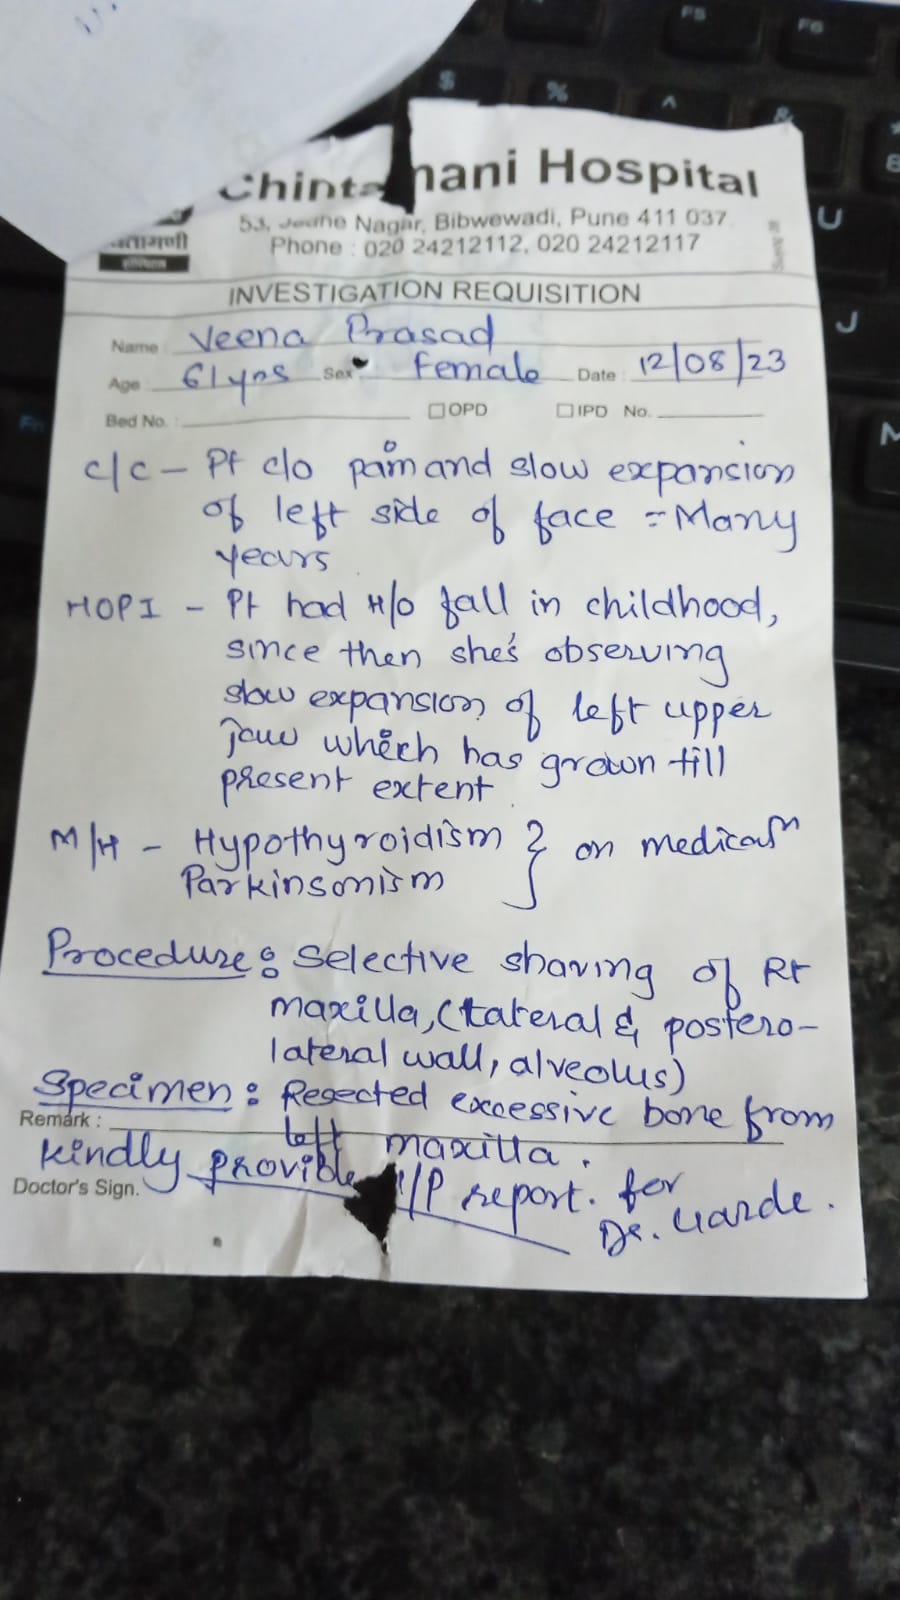 Chinta mani Hospital
53, Jedhe Nagar, Bibwewadi, Pune 411 037.
Phone : 020 24212112, 020 24212117
INVESTIGATION REQUISITION
Name Veena Prasad
Age : 61 yrs Sex Female Date : 12/08/23
Bed No. : OPD IPD No.
C/C - Pt c/o pain and slow expansion
of left side of face - Many
years
HOPI - Pt had H/o fall in childhood,
since then she's observing
slow expansion of left upper
jaw which has grown till
present extent
M/H - Hypothyroidism } on medicaⁿ
Parkinsonism
Procedure : Selective shaving of Rt
maxilla, (lateral & postero-
lateral wall, alveolus)
Specimen : Resected excessive bone from
Remark :
left maxilla.
kindly provide H/P report. for
Doctor's Sign.
Dr. Garde.